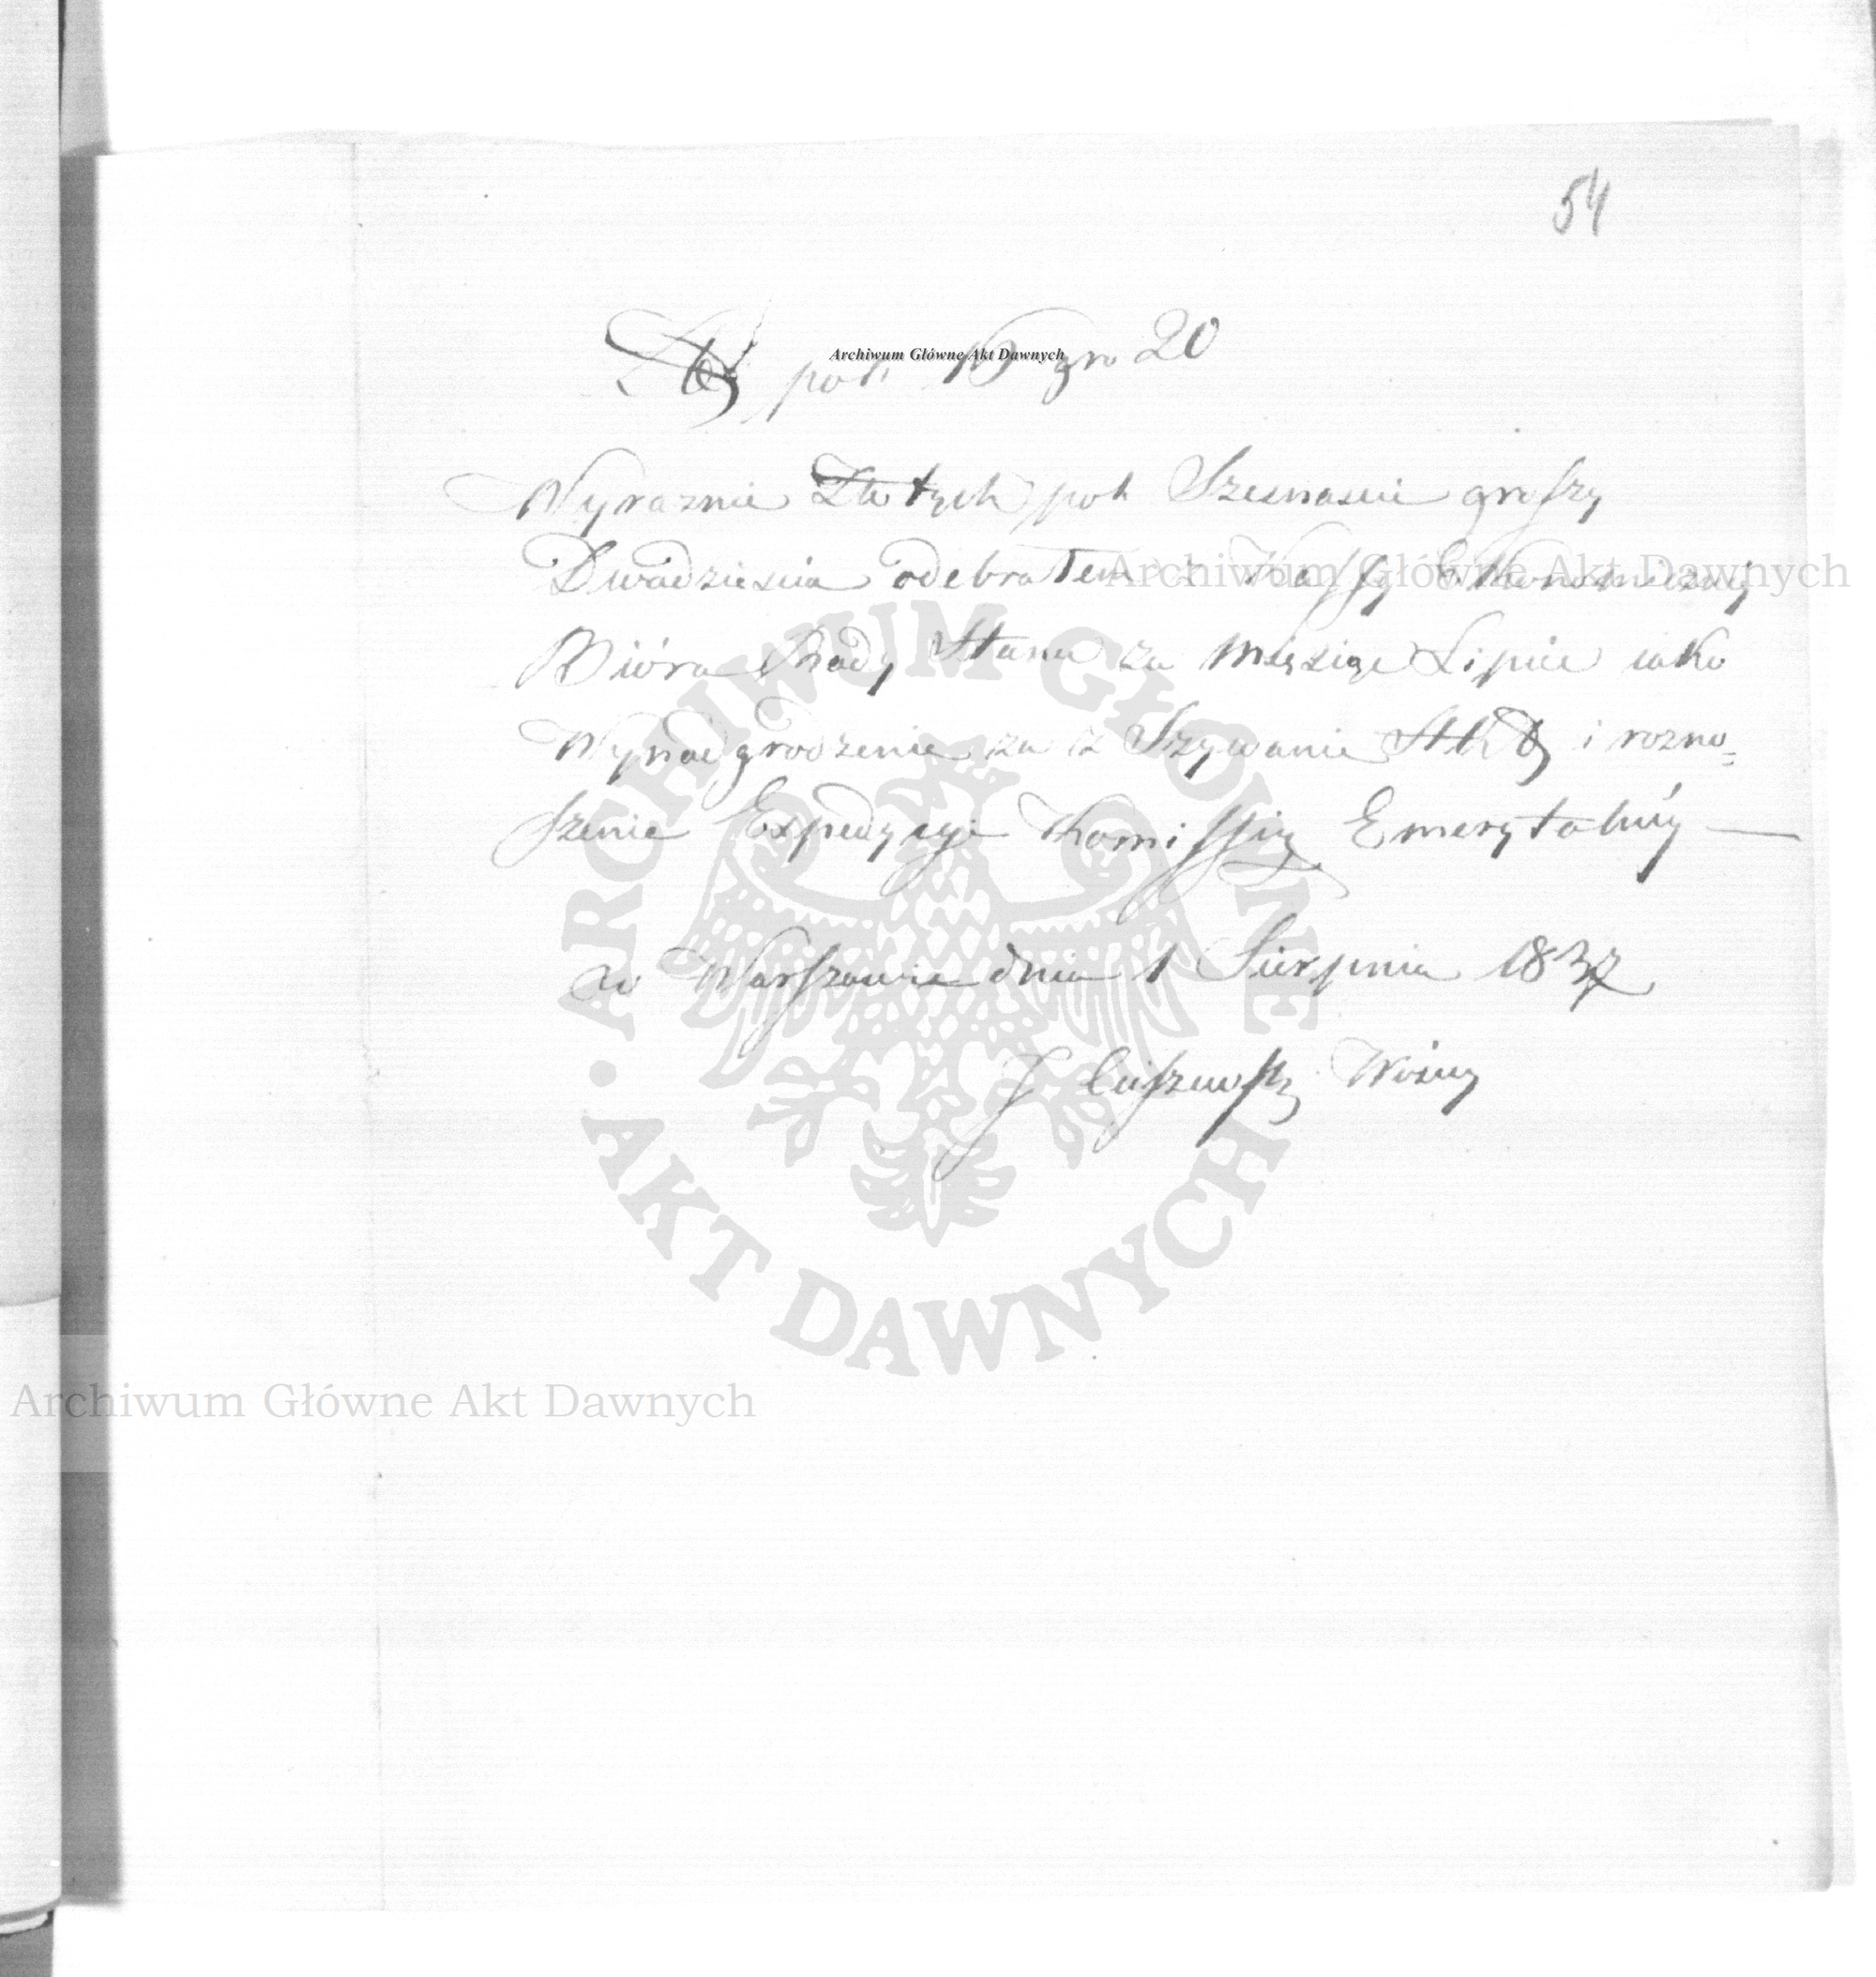 54
Złł pol: 16 gro 20
Archiwum Główne Akt Dawnych
Wyraznie Złotych pol Szesnascie groszy
Dwadziescia odebrałem z Kassy Ekonomiczny
Archiwum Główne Akt Dawnych
Bióra Rady Stanu za Mięsiąc Lipiec iako
Wynadgrodzenie za z Szywanie Akt i rozno=
szenie Expedycyi Kommissyi Emerytalný —
w Warszawie dnia 1 Sierpnia 1837
J Woźny
ARCHIWUM GŁÓWNE
• AKT DAWNYCH
Archiwum Główne Akt Dawnych